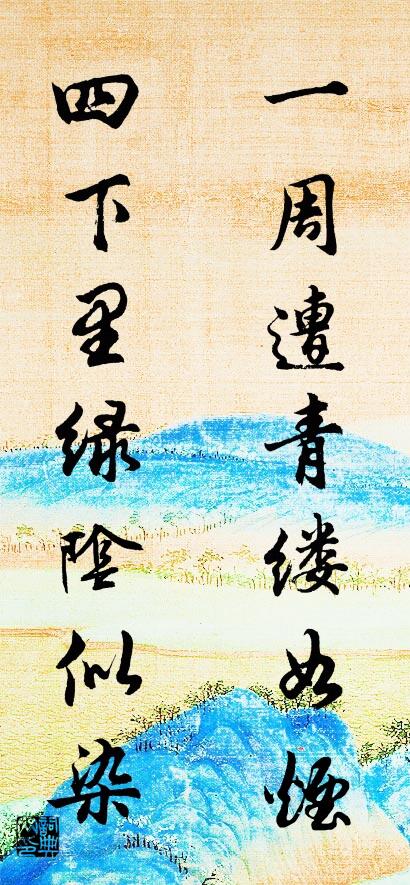 一周遭青缕如烟
四下里绿阴似染